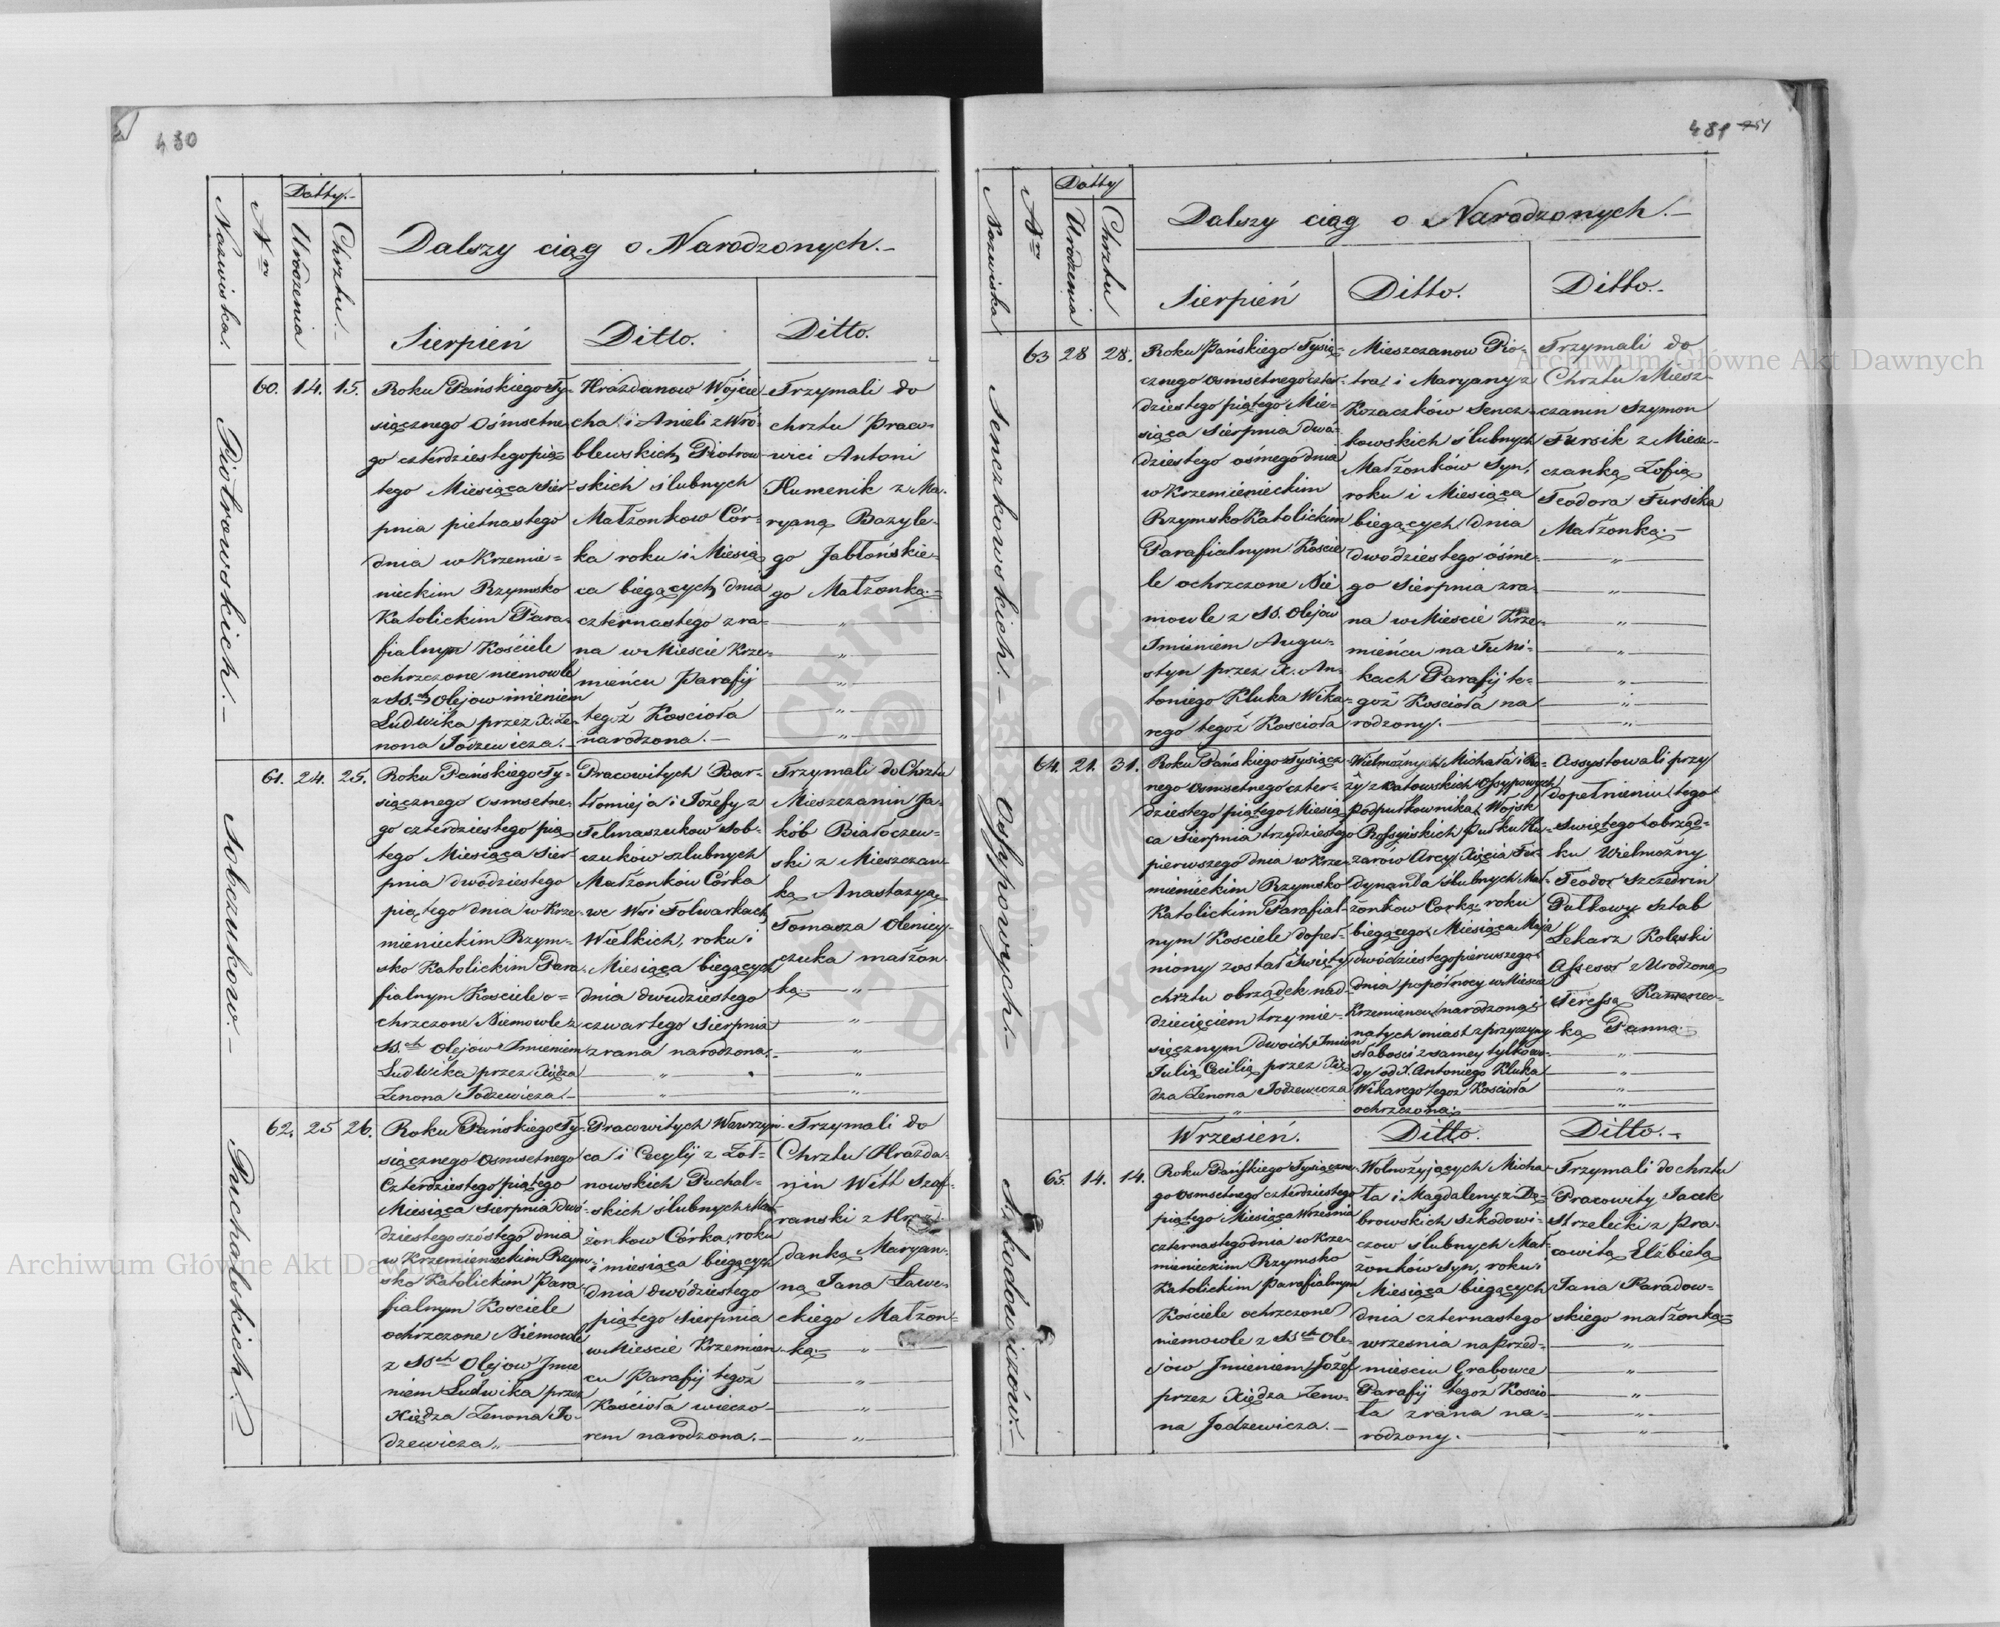 430
Nazwiska.
Nro
Datty.
Urodzenia
Chrztu.
Dalszy ciąg o Narodzonych.
Sierpień
Ditto.
Ditto.
Piotrowskich.
60.
14.
15.
Roku Pańskiego Ty-
siącznego Ośmsetne
go czterdziestego pią
tego Miesiąca Sier-
pnia pietnastego
dnia w Krzemie=
nieckim Rzymsko
Katolickim Para-
fialnym Kościele
ochrzczone niemowle
z SS.ch Olejow imieniem
Ludwika przez X. Ze-
nona Jodzewicza.
Hrazdanow Wojcie
cha i Anieli z Wró-
blewskich Piotrow-
skich ślubnych
Małżonkow Cór-
ka roku i Miesią
ca biegących dnia
czternastego zra-
na w Mieście Krze-
mieńcu Parafij
tegoż Kościoła
narodzona.
Trzymali do
chrztu Praco-
wici Antoni
Humenik z Ma-
ryaną Bazyle-
go Jabłońskie-
go Małżonką.
Sobczukow.
61.
24.
25.
Roku Pańskiego Ty-
siącznego osmsetne-
go czterdziestego pią
tego Miesiąca Sier-
pnia dwódziestego
piątego dnia w Krze-
mienieckim Rzym-
sko Katolickim Para-
fialnym Kosciele o=
chrzczone Niemowle z
SS.ch Olejów Imieniem
Ludwika przez Xiędza
Zenona Jodzewicza.
Pracowitych Bar-
tłomieja i Józefy z
Telmaszukow Sob-
czuków szlubnych
Małżonków Córka
we Wsi Folwarkach
Wielkich, roku i
Miesiąca biegących
dnia dwudziestego
czwartego Sierpnia
zrana narodzona.
Trzymali do Chrztu
Mieszczanin Ja-
kób Białoczew-
ski z Mieszczan-
ką Anastazyą
Tomasza Olenicy-
czuka małżon
ką.
Puchalskich.
62.
25
26.
Roku Pańskiego Ty-
siącznego Osmsetnego
Czterdziestego piątego
Miesiąca Sierpnia dwó-
dziestego szóstego dnia
w Krzemienieckim Rzym-
sko Katolickim Para-
fialnym Kosciele
ochrzczone Niemowle
z SSch Olejow Imie
niem Ludwika przez
Xiędza Zenona Jo-
dzewicza.
Pracowitych Wawrzyn-
ca i Cecylij z Żół-
nowskich Puchal-
skich ślubnych Mał-
żonkow Córka, roku
i miesiąca biegących
dnia dwódziestego
piątego Sierpnia
w Mieście Krzemień
cu Parafij tegoż
Kościoła wieczo-
rem narodzona.
Trzymali do
Chrztu Hrażda-
nin Witt Szaf-
ranski z Hraż-
danką Maryan-
ną Jana Sawe-
ckiego Małżon-
ką.
481 751
Nazwiska
Nro
Datty
Urodzenia
Chrztu
Dalszy ciąg o Narodzonych.
Sierpień
Ditto.
Ditto.
Senczkowskich.
63
28
28.
Roku Pańskiego Tysią-
cznego osmsetnego czter-
dziestego piątego Mie-
siąca Sierpnia dwó-
dziestego ośmego dnia
w Krzemienieckim
Rzymsko Katolickim
Parafialnym Koscie
le ochrzczone Nie-
mowle z SS. Olejow
Imieniem Augu-
styn przez X. An-
toniego Kluka Wika-
rego tegoż Kościoła
Mieszczanow Pio-
tra i Maryany z
Kozaczków Sencz-
kowskich ślubnych
Małżonków Syn,
roku i Miesiąca
biegących dnia
dwódziestego ośme-
go Sierpnia zra-
na w Mieście Krze-
mieńcu na Tuni-
kach Parafij te-
goż Kościoła na
rodzony.
Trzymali do
Chrztu Miesz-
czanin Szymon
Fursik z Miesz-
czanką Zofią
Teodora Fursika
Małżonką.
Ossypowych.
64.
21.
31.
Roku Pańskiego Tysiącz-
nego osmsetnego czter-
dziestego piątego Miesią
ca Sierpnia trzydziestego
pierwszego dnia w Krze-
mienieckim Rzymsko
Katolickim Parafial-
nym Kosciele dopeł-
niony został Święty
chrztu obrządek nad
dziecięciem trzymie-
sięcznym dwoich Imion
Julią Cecilią przez Xię-
dza Zenona Jodzewicza
Wielmożnych Michała i Ró-
ży z Ossypowych
Podpułkownika Wojsk
Rossyiskich Pułku Hu-
zarów Arcy Xięcia Fer-
dynanda ślubnych Mał-
żonkow Corka, roku
biegącego Miesiąca Maja
dwódziestego pierwszego
dnia popółnocy w Miescie
Krzemieńcu narodzona i
natychmiast z przyczyny
słabości z samey tylko wo-
dy od X. Antoniego Kluka
Wikarego tegoż Kościoła
ochrzczona.
Assystowali przy
dopełnieniu tego
Swiętego obrząd-
ku Wielmożny
Teodor Szczedrin
Pułkowy Sztab
Lekarz Koleski
Assesor z Urodzoną
Teressą
Panną.
Wrzesień.
Ditto.
Ditto.
Sikodowiczów.
65.
14.
14.
Roku Pańskiego Tysiączne-
go osmsetnego czterdziestego
piątego Miesiąca Września
czternastego dnia w Krze-
mienieckim Rzymsko
Katolickim Parafialnym
Kościele ochrzczone
niemowle z SSch Ole-
jow Imieniem Józef
przez Xiędza Zeno-
na Jodzewicza.
Wolnożyjących Micha-
ła i Magdaleny z Dą-
browskich Sikodowi-
czow ślubnych Mał-
żonków Syn, roku i
Miesiąca biegących
dnia czternastego
wrzesnia na Przed-
mieściu Grabowce
Parafij tegoż Koscio-
ła zrana na-
rodzony.
Trzymali do chrztu
Pracowity Jacek
Strzelecki z Pra-
cowitą Elżbietą
Jana Paradow-
skiego małżonką
Archiwum Główne Akt Dawnych
Archiwum Główne Akt Dawnych